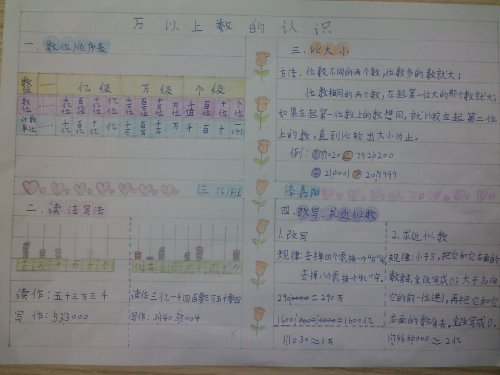 万以上数的认识
一、数位顺序表
数级 …… 亿级 万级 个级
数位 …… 千亿位 百亿位 十亿位 亿位 千万位 百万位 十万位 万位 千位 百位 十位 个位
计数单位 …… 千亿 百亿 十亿 亿 千万 百万 十万 万 千 百 十 一(个)
二、读法写法
读作:五十三万三千
写作:533000
读作:三亿一千四百零三万五千零四
写作:314035004
三、比大小
方法:位数不同的两个数,位数多的数就大;
位数相同的两个数,左起第一位大的那个数就大;
如果左起第一位数上的数相同,就比较左起第二位
上的数,直到比较出大小为止。
例:
四、改写、求近似数
1.改写
规律:去掉四个零换一个“万”字
去掉八个零换一个“亿”字。
2900000=290万
2.求近似数
规律:小于5,把它和它右面的
数舍去,全改写成0;大于5,向
它的前一位进1,再把它和它
右面的数舍去,全改写成0。
≈2亿